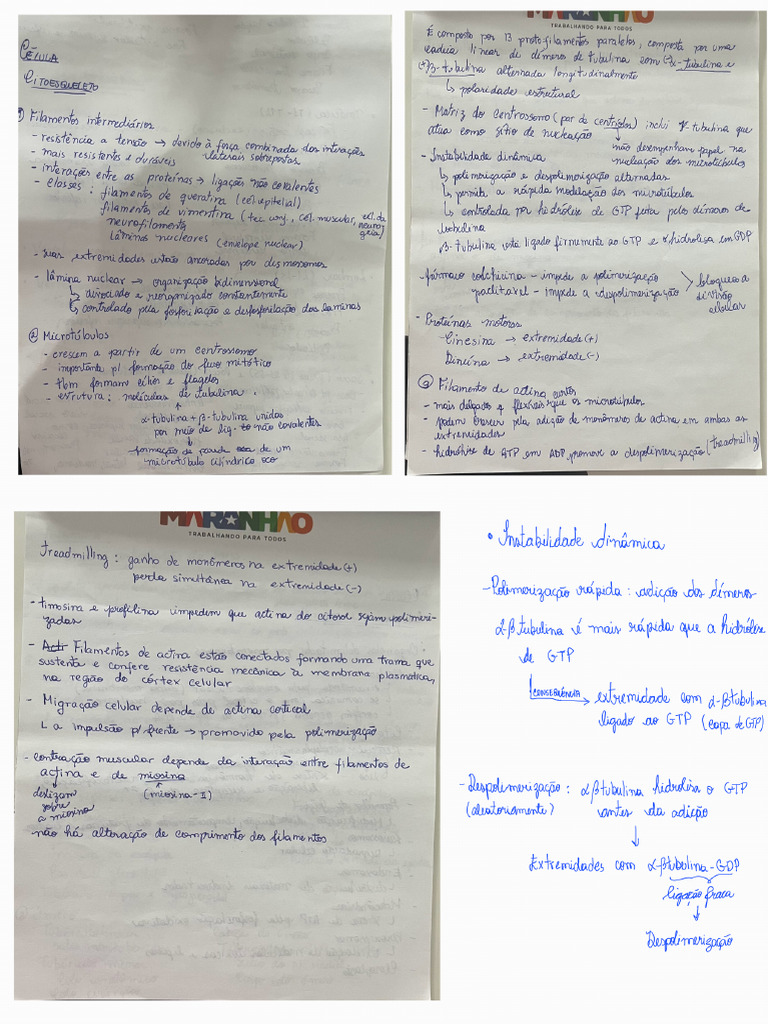 CÉLULA
CITOESQUELETO
① Filamentos intermediários
- resistência a tensão → devido à força combinada das interações
- mais resistentes e duráveis laterais sobrepostas
- interações entre as proteínas → ligações não covalentes
- classes: filamentos de queratina (cél. epitelial)
filamentos de vimentina (tec. conj, cél. muscular, cél. da neuroglia)
neurofilamento
lâminas nucleares (envelope nuclear)
- suas extremidades estão ancoradas por desmossomos
- lâmina nuclear → organização bidimensional
↳ dissociado e reorganizado constantemente
↳ controlado pela fosforilação e desfosforilação das laminas
② Microtúbulos
- crescem a partir de um centrossomo
- importante p/ formação do fuso mitótico
- tbm formam cílios e flagelos
- estrutura: moléculas de tubulina.
α-tubulina + β-tubulina unidas
por meio de lig. não covalentes
formação de parede de um
microtúbulo cilíndrico oco
MARANHÃO
TRABALHANDO PARA TODOS
É composto por 13 protofilamentos paralelos, composta por uma
cadeia linear de dímeros de tubulina com α-tubulina e
β-tubulina alternada longitudinalmente
↳ polaridade estrutural
- Matriz do centrossomo (par de centríolos) inclui γ-tubulina que
atua como sítio de nucleação
não desempenham papel na
nucleação dos microtúbulos
- Instabilidade dinâmica
↳ polimerização e despolimerização alternadas
↳ permite a rápida modelação dos microtúbulos
↳ controlada por hidrólise de GTP feita pelos dímeros de
tubulina
β-tubulina está ligado firmemente ao GTP e hidrolisa em GDP
- fármaco colchicina - impede a polimerização
paclitaxel - impede a despolimerização
bloqueio a
divisão
celular
- Proteínas motoras
Cinesina → extremidade (+)
Dineína → extremidade (-)
③ Filamento de actina
- mais delgados, flexíveis que os microtúbulos
curtos
- podem crescer pela adição de monômeros de actina em ambas as
extremidades
- hidrólise de ATP em ADP promove a despolimerização (treadmilling)
MARANHÃO
TRABALHANDO PARA TODOS
Treadmilling: ganho de monômeros na extremidade (+)
perda simultânea na extremidade (-)
- timosina e profilina impedem que actina do citosol sejam polimeri-
zadas
- Filamentos de actina estão conectados formando uma trama que
sustenta e confere resistência mecânica à membrana plasmática,
na região do córtex celular
- Migração celular depende de actina cortical
L a impulsão p/ frente → promovido pela polimerização
- contração muscular depende da interação entre filamentos de
actina e de miosina
deslizam
sobre
a miosina
(miosina-II)
- não há alteração de comprimento dos filamentos
• Instabilidade dinâmica
- Polimerização rápida: adição dos dímeros
αβtubulina é mais rápida que a hidrólise
de GTP
CONSEQUÊNCIA → extremidade com α-βtubulina
ligado ao GTP (capa de GTP)
- Despolimerização: αβtubulina hidrolisa o GTP
(aleatoriamente?) antes da adição
Extremidades com α-βtubulina-GDP
ligação fraca
Despolimerização